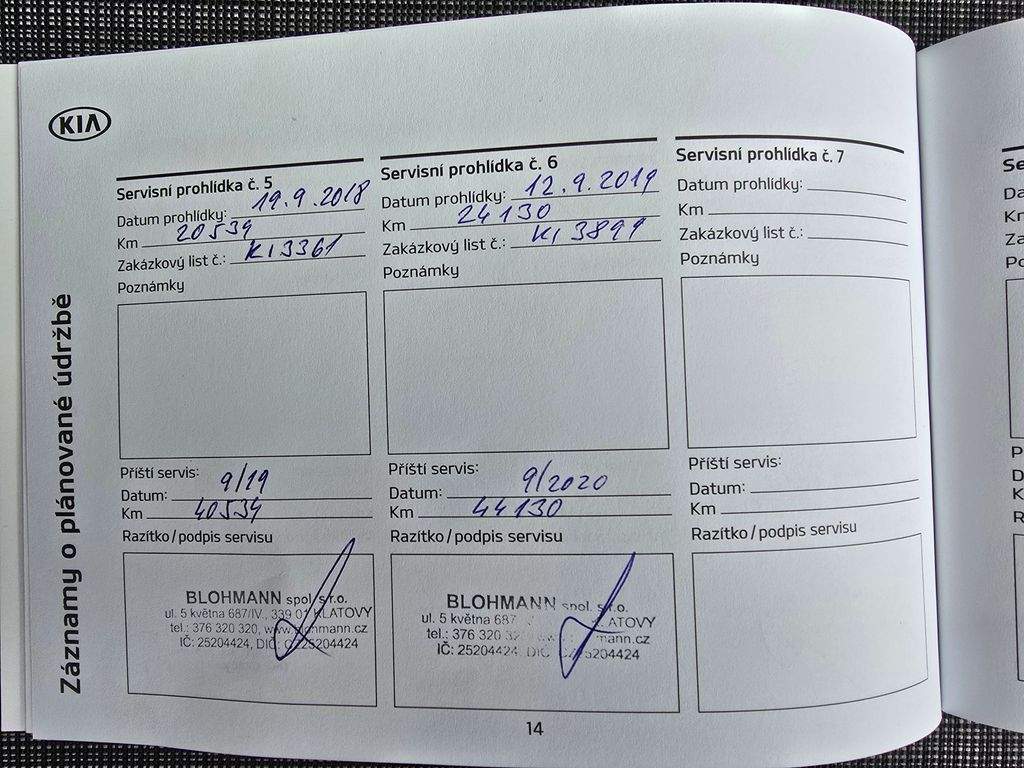 KIA
Záznamy o plánované údržbě
Servisní prohlídka č. 5
Datum prohlídky: 19.9.2018
Km 20534
Zakázkový list č.: KI3361
Poznámky
Příští servis:
Datum: 9/19
Km 40534
Razítko/podpis servisu
BLOHMANN spol. s r.o.
ul. 5 května 687/IV., 339 01 KLATOVY
tel.: 376 320 320, www.blohmann.cz
IČ: 25204424, DIČ: CZ25204424
Servisní prohlídka č. 6
Datum prohlídky: 12.9.2019
Km 24130
Zakázkový list č.: KI3899
Poznámky
Příští servis:
Datum: 9/2020
Km 44130
Razítko/podpis servisu
BLOHMANN spol. s r.o.
ul. 5 května 687 KLATOVY
tel.: 376 320
IČ: 25204424, DIČ CZ25204424
Servisní prohlídka č. 7
Datum prohlídky:
Km
Zakázkový list č.:
Poznámky
Příští servis:
Datum:
Km
Razítko/podpis servisu
14